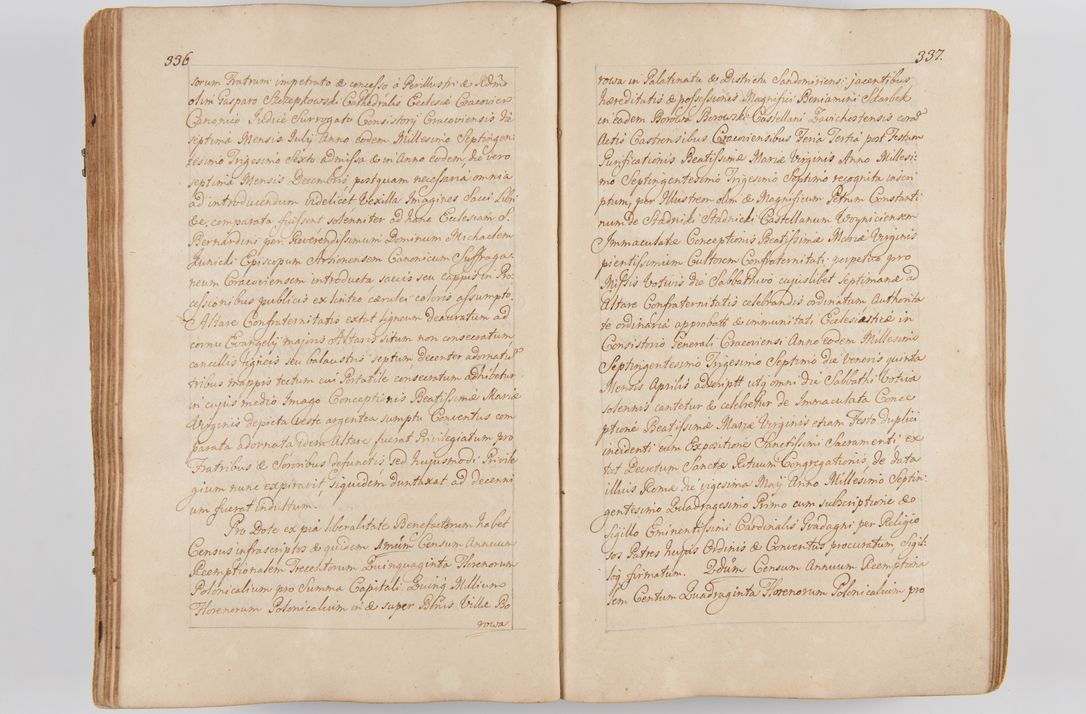 336
sorum Fratrum impetrato & concesso à Perillustri & Rdmo
olim Gasparo Szczepkowski Cathedralis Ecclesiæ Cracovien
Canonico Judice Surrogato Consistorij Cracoviensis die
septima Mensis Julij Anno eodem Millesimo Septingen
tesimo Trigesimo Sexto admissa & in Anno eodem die vero
septima Mensis Decembris postquam necessaria omnia
ad introducendum videlicet Vexilla Imagines Sacci Libri
&c. comparata fuissent solenniter ad hanc Ecclesiam S.
Bernardini per Reverendissimum Dominum Michaelem
Kunicki Episcopum Arsionensem Canonicum Suffraga
neum Cracoviensem introducta saccis seu cappis in Pro
cessionibus publicis ex linteo cærulei coloris assumpto.
Altare Confraternitatis extat ligneum deauratum ad
cornu Evangelij majoris Altaris situm non consecratum
cancellis ligneis seu balaustris septum decenter adornatū
tribus mappis tectum cui Portatile consecratum adhibetur
in cujus medio Imago Conceptionis Beatissimæ Mariæ
Virginis depicta veste argentea sumptu Conventus com
parata adornata. Idem Altare fuerat Privilegiatum pro
Fratribus & Sororibus defunctis sed hujusmodi Privile
gium nunc expiravit, siquidem duntaxat ad decenni
um fuerat indultum.
Pro Dote ex pia liberalitate Benefactorum habet
Census infrascriptos & quidem 1mum Censum Annuum
Reemptionalem Trecentorum Quinquaginta Florenorum
Polonicalium pro Summa Capitali Quinq Millium
Florenorum Polonicalium in & super Bonis Villæ Bo
rowa
337.
rowa in Palatinatu & Districtu Sandomiriensi jacentibus
hæreditatis & possessionis Magnifici Beniamini Skarbek
in eadem Borowa Borowski Castellani Zavichostensis corā
Actis Castrensibus Cracoviensibus Feria Tertia post Festum
Purificationis Beatissimæ Mariæ Virginis Anno Millesi
mo Septingentesimo Trigesimo Septimo recognita inscri
ptum, per Illustrem olim & Magnificum Petrum Constanti
num de Stadniki Stadnicki Castellanum Woyniciensem
Immaculatæ Conceptionis Beatissimæ Mariæ Virginis
pientissimum Cultorem Confraternitati perpetuo pro
Missis Votivis die Sabbathivo cujuslibet septimanæ ad
Altare Confraternitatis celebrandis ordinatum Authorita
te ordinaria approbatū & immunitati Ecclesiasticæ in
Consistorio Generali Cracoviensi Anno eodem Millesimo
Septingentesimo Trigesimo Septimo die veneris quinta
Mensis Aprilis adscriptū utq omni die Sabbathi Votiva
solennis cantetur & celebretur de Immaculata Conce
ptione Beatissimæ Mariæ Virginis etiam Festo duplici
incidenti cum Expositione Sanctissimi Sacramenti ex
tat Decretum Sanctæ Rituum Congregationis de data
illius Romæ die vigesima Maij Anno Millesimo Septin:
gentesimo Quadragesimo Primo cum subscriptione &
Sigillo Eminentissimi Cardinalis Guadagni per Religio
sos Patres hujus Ordinis & Conventus procuratum Sigil:
loq firmatum. 2dum Censum Annuum Reemptiona
lem Centum Quadraginta Florenorum Polonicalium pro